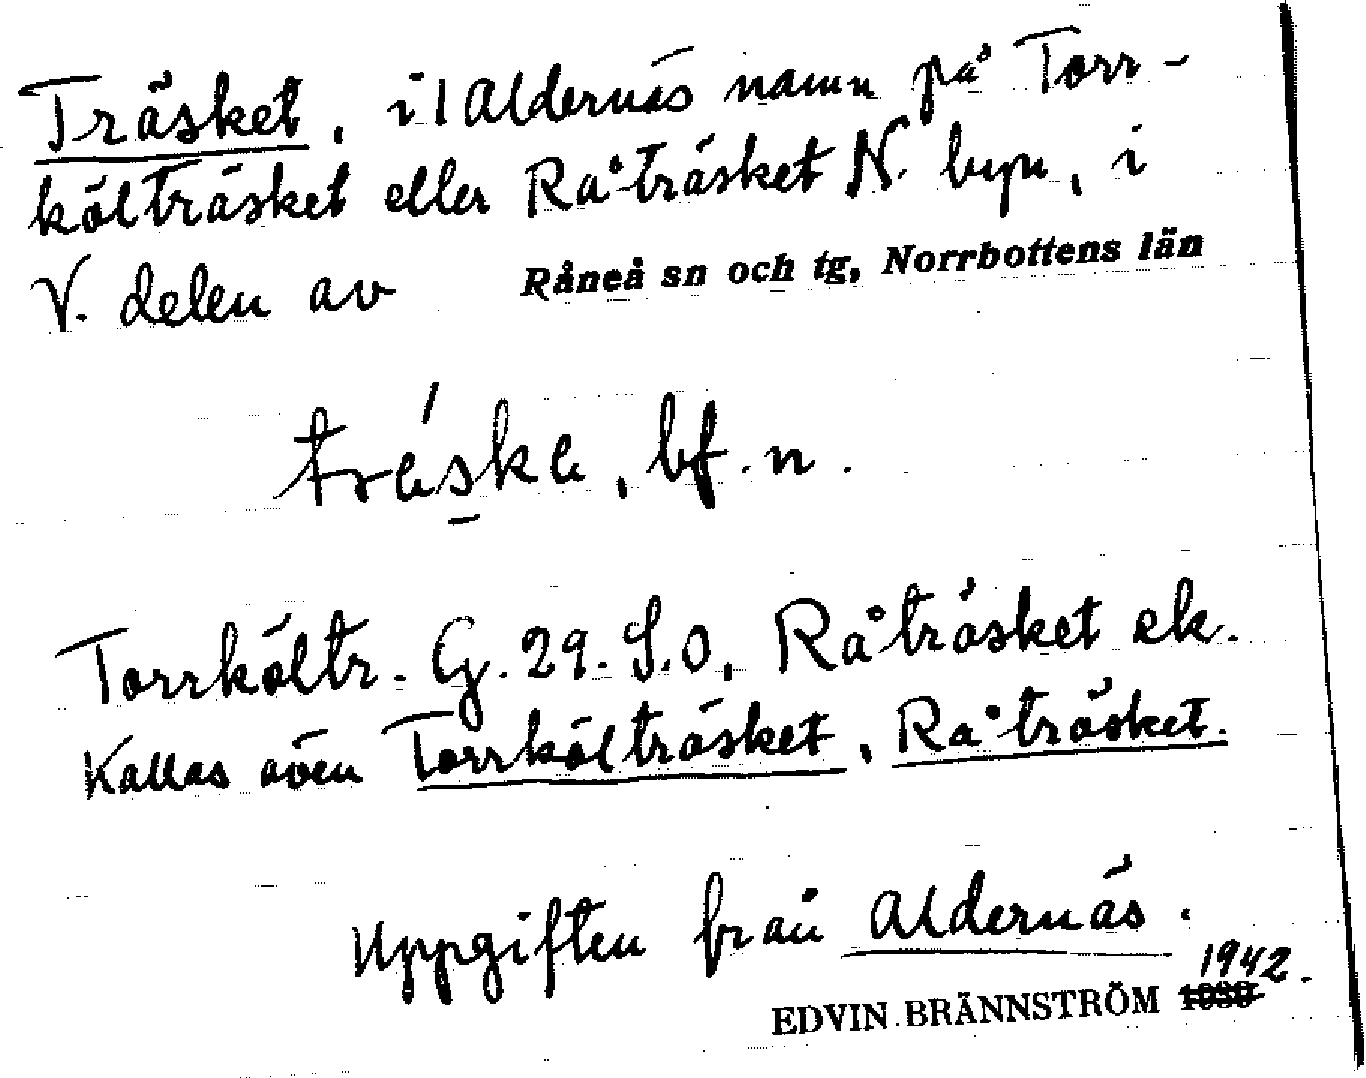 Träsket, i Aldernäs namn på Torr-
költräsket eller Råträsket N. byn, i
V. delen av Råneå sn och tg, Norrbottens län
tráska, bf. n.
Torrköltr. G. 29. S.O, Råträsket ek.
Kallas även Torrkölträsket, Råträsket.
Uppgiften från Aldernäs.
1942.
EDVIN BRÄNNSTRÖM 1939